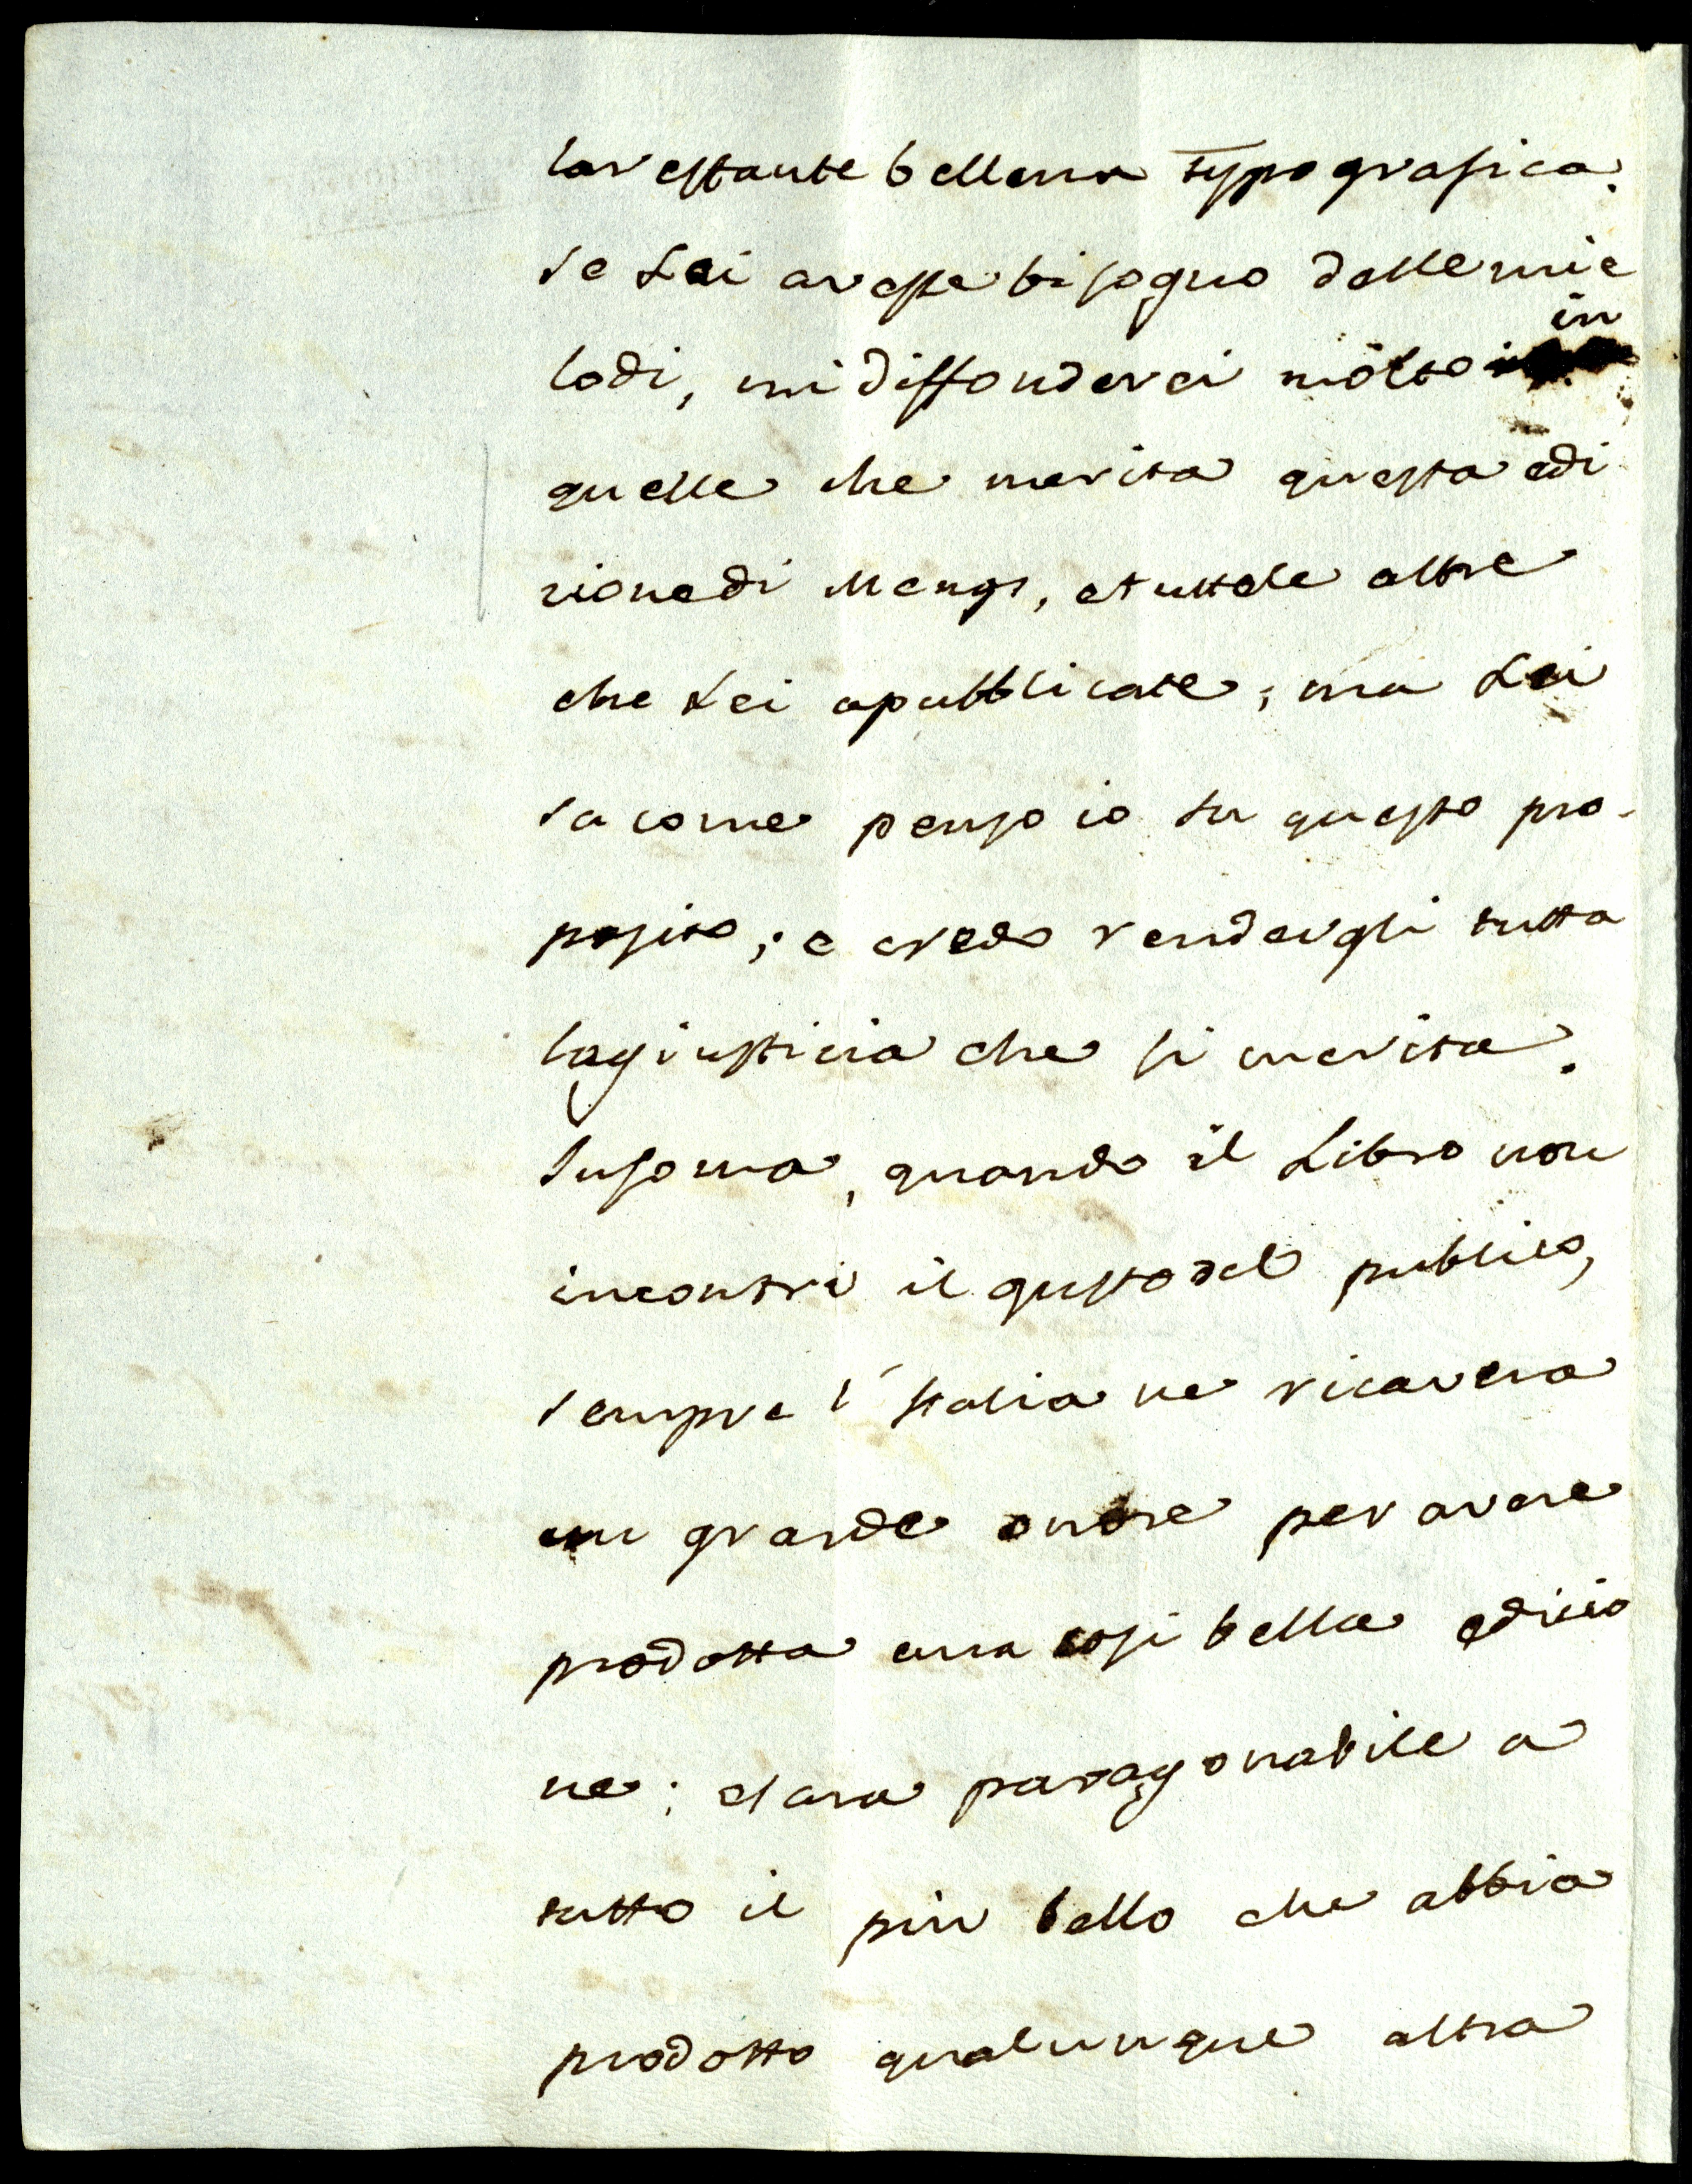 la restante bellezza typografica.
se Lei avesse bisogno delle mie
lodi, mi diffonderei molto in
quelle che merita questa edi
zione di Mengs, e tutte le altre
che Lei a pubblicate; ma Lei
sa come penso io su questo pro-
posito; e credo rendergli tutta
la giusticia che si merita.
Insoma, quando il Libro non
incontri il gusto del publico,
sempre l'Italia ne ricavera
un grande onore per avere
prodotta una cosi bella edicio
ne; e sara paragonabile a
tutto il piu bello che abbia
prodotto qualunque altra